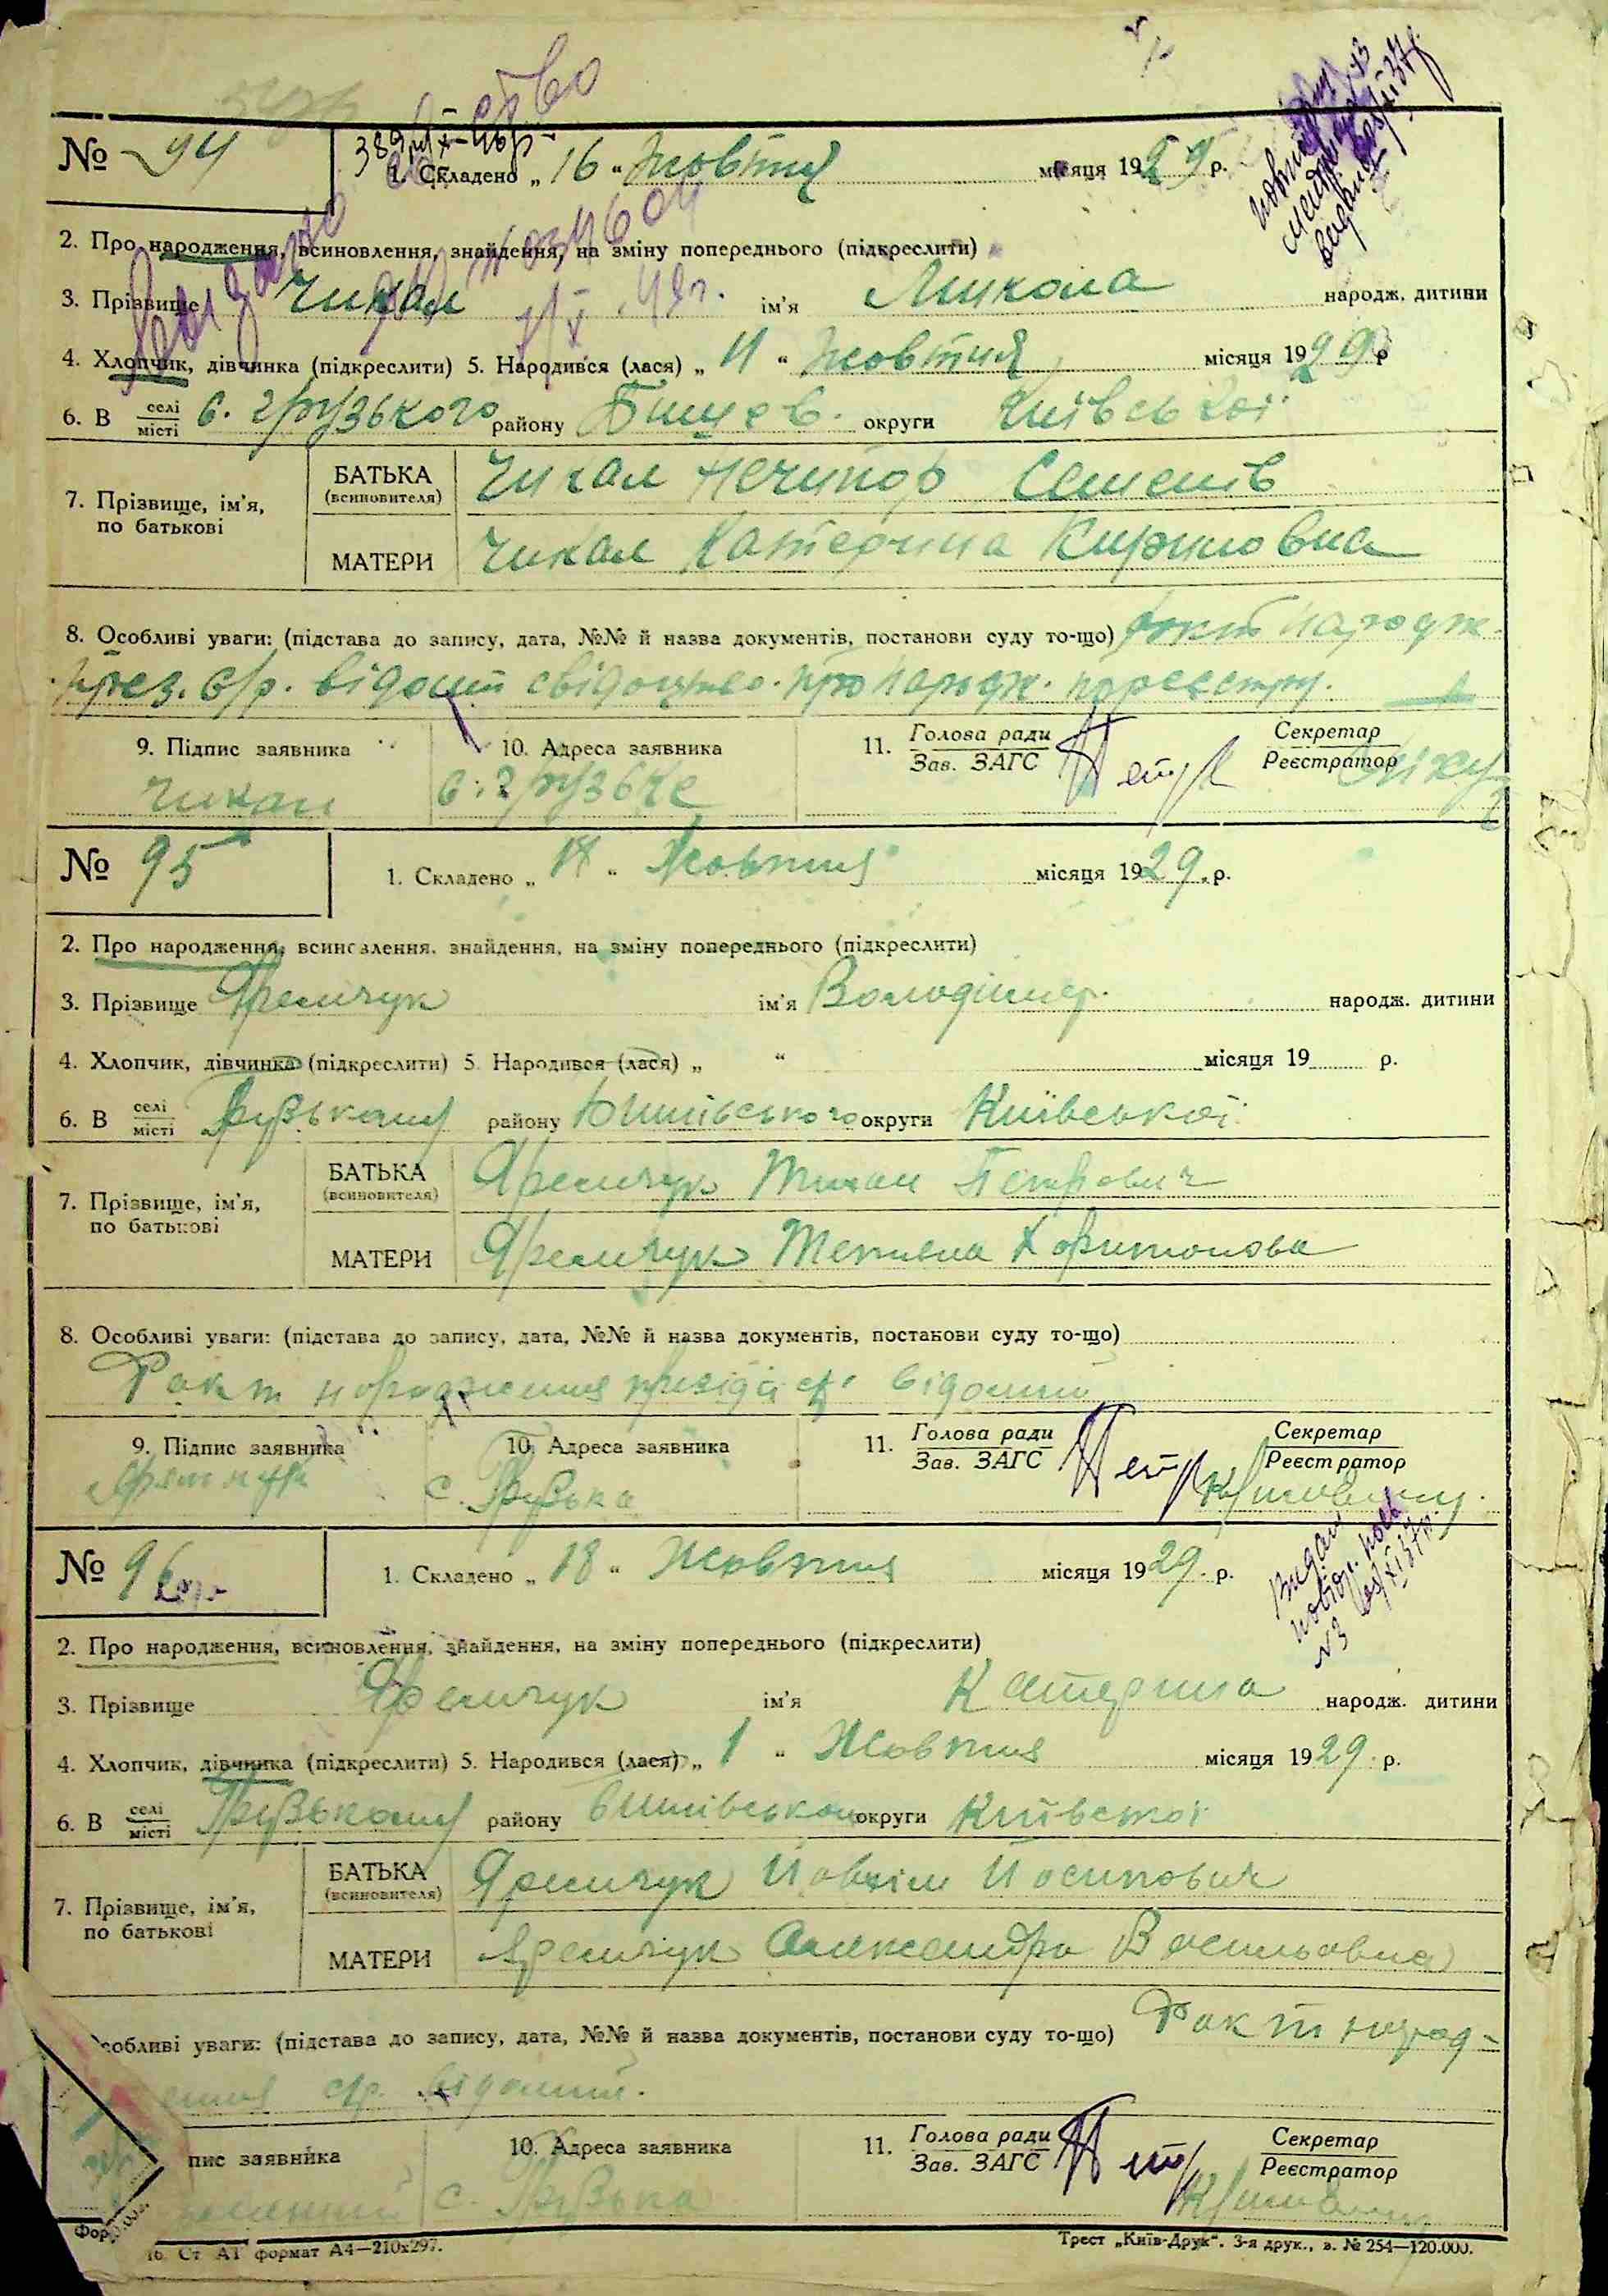 № 94
1. Складено „ 16 “ Жовтня місяця 1929 р.
2. Про народження, всиновлення, знайдення, на зміну попереднього (підкреслити)
3. Прізвище Чикал ім'я Микола народж. дитини
4. Хлопчик, дівчинка (підкреслити) 5. Народився (лася) „ 11 “ Жовтня місяця 1929 р
6. В селі/місті с. Грузького району Бишев. округи Київської
7. Прізвище, ім'я, по батькові
БАТЬКА (всиновителя) Чикал Нечипор Семенів
МАТЕРИ Чикал Катерина Кириловна
8. Особливі уваги: (підстава до запису, дата, №№ й назва документів, постанови суду то-що) факт народж.
През. с/р. відомий свідоцтво про народж.
9. Підпис заявника 10. Адреса заявника 11. Голова ради/Зав. ЗАГС Секретар/Реєстратор
Чикал с. Грузьке
№ 95
1. Складено „ “ Жовтня місяця 1929 р.
2. Про народження, всиновлення, знайдення, на зміну попереднього (підкреслити)
3. Прізвище Яремчук ім'я Володимер. народж. дитини
4. Хлопчик, дівчинка (підкреслити) 5. Народився (лася) „ “ місяця 19 р.
6. В селі/місті Грузькому району округи Київської
7. Прізвище, ім'я, по батькові
БАТЬКА (всиновителя) Яремчук Петрович
МАТЕРИ Яремчук Тетяна Харитонова
8. Особливі уваги: (підстава до запису, дата, №№ й назва документів, постанови суду то-що)
Факт народження президії с/р відомий
9. Підпис заявника 10. Адреса заявника 11. Голова ради/Зав. ЗАГС Секретар/Реєстратор
Яремчук с. Грузька
№ 96
1. Складено „ 18 “ Жовтня місяця 1929. р.
2. Про народження, всиновлення, знайдення, на зміну попереднього (підкреслити)
3. Прізвище Яремчук ім'я Катерина народж. дитини
4. Хлопчик, дівчинка (підкреслити) 5. Народився (лася) „ 1 “ Жовтня місяця 1929. р.
6. В селі/місті Грузькому району округи Київської
7. Прізвище, ім'я, по батькові
БАТЬКА (всиновителя) Яремчук Йовхім Йосипович
МАТЕРИ Яремчук Александра Васильовна
собливі уваги: (підстава до запису, дата, №№ й назва документів, постанови суду то-що) Факт народ-
ення с/р. відомий.
пис заявника 10. Адреса заявника 11. Голова ради/Зав. ЗАГС Секретар/Реєстратор
с. Грузька
Фор
16. Ст АТ формат А4—210х297. Трест „Київ-Друк“. 3-я друк., з. № 254—120.000.